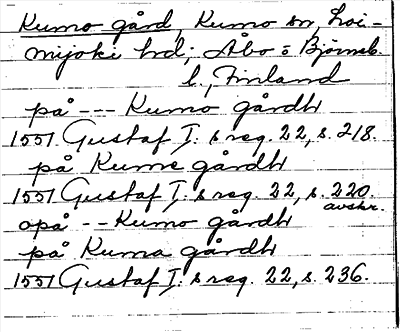 Kumo gård, Kumo sn, Loi-
mijoki hd; Åbo o Björneb.
l, Finland
på --- Kumo gårdh
1551 Gustaf I. s reg. 22, s. 218.
på Kume gårdh
1551 Gustaf I. s reg. 22, s. 220.
avskr.
opå -- Kumo gårdh
på Kuma gårdh
1551 Gustaf I. s reg. 22, s. 236.